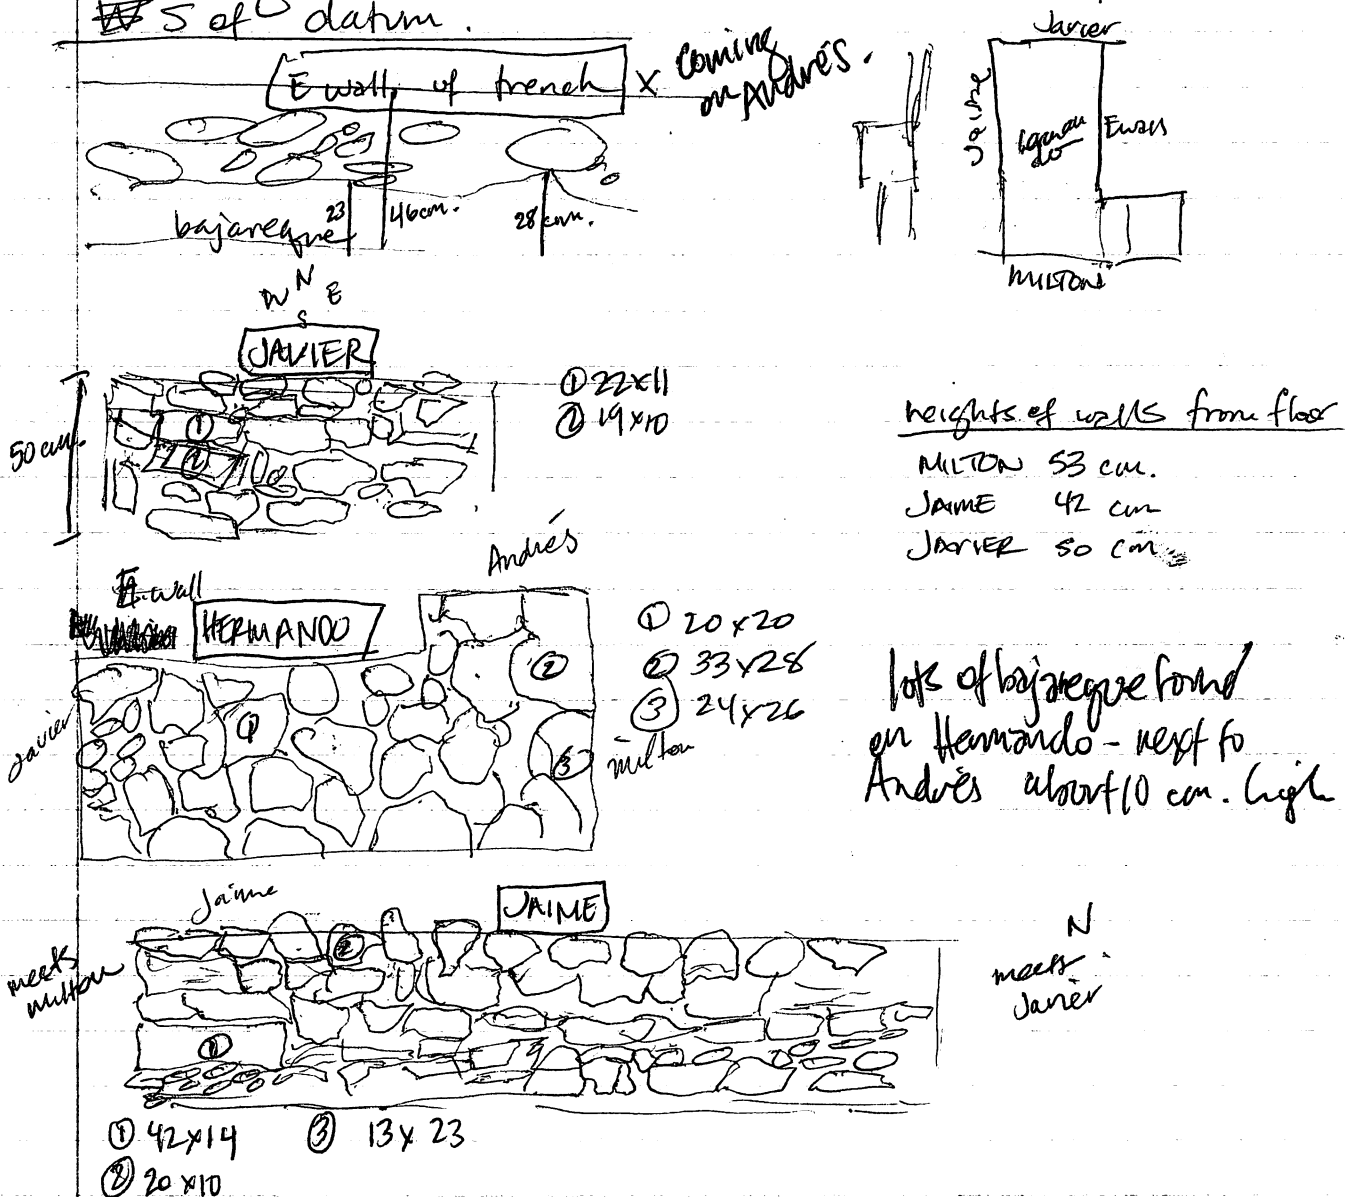 S of datum.
E wall of trench x coming on Andrés.
bajareque 23 46cm. 28 cm.
Javier
Jaime
E wall
MILTON
W N E
S
JAVIER
50 cm.
① 22x11
② 19x10
①
②
heights of walls from floor
MILTON 53 cm.
JAIME 42 cm
JAVIER 50 cm
Andrés
E. wall
HERMANDO
Javier
①
②
③
① 20x20
② 33x28
③ 24x26
milton
lots of bajareque found
on Hermando - next to
Andrés about 10 cm. high
Jaime
JAIME
meets
milton
②
①
N
meets
Javier
① 42x14 ③ 13x23
② 20x10